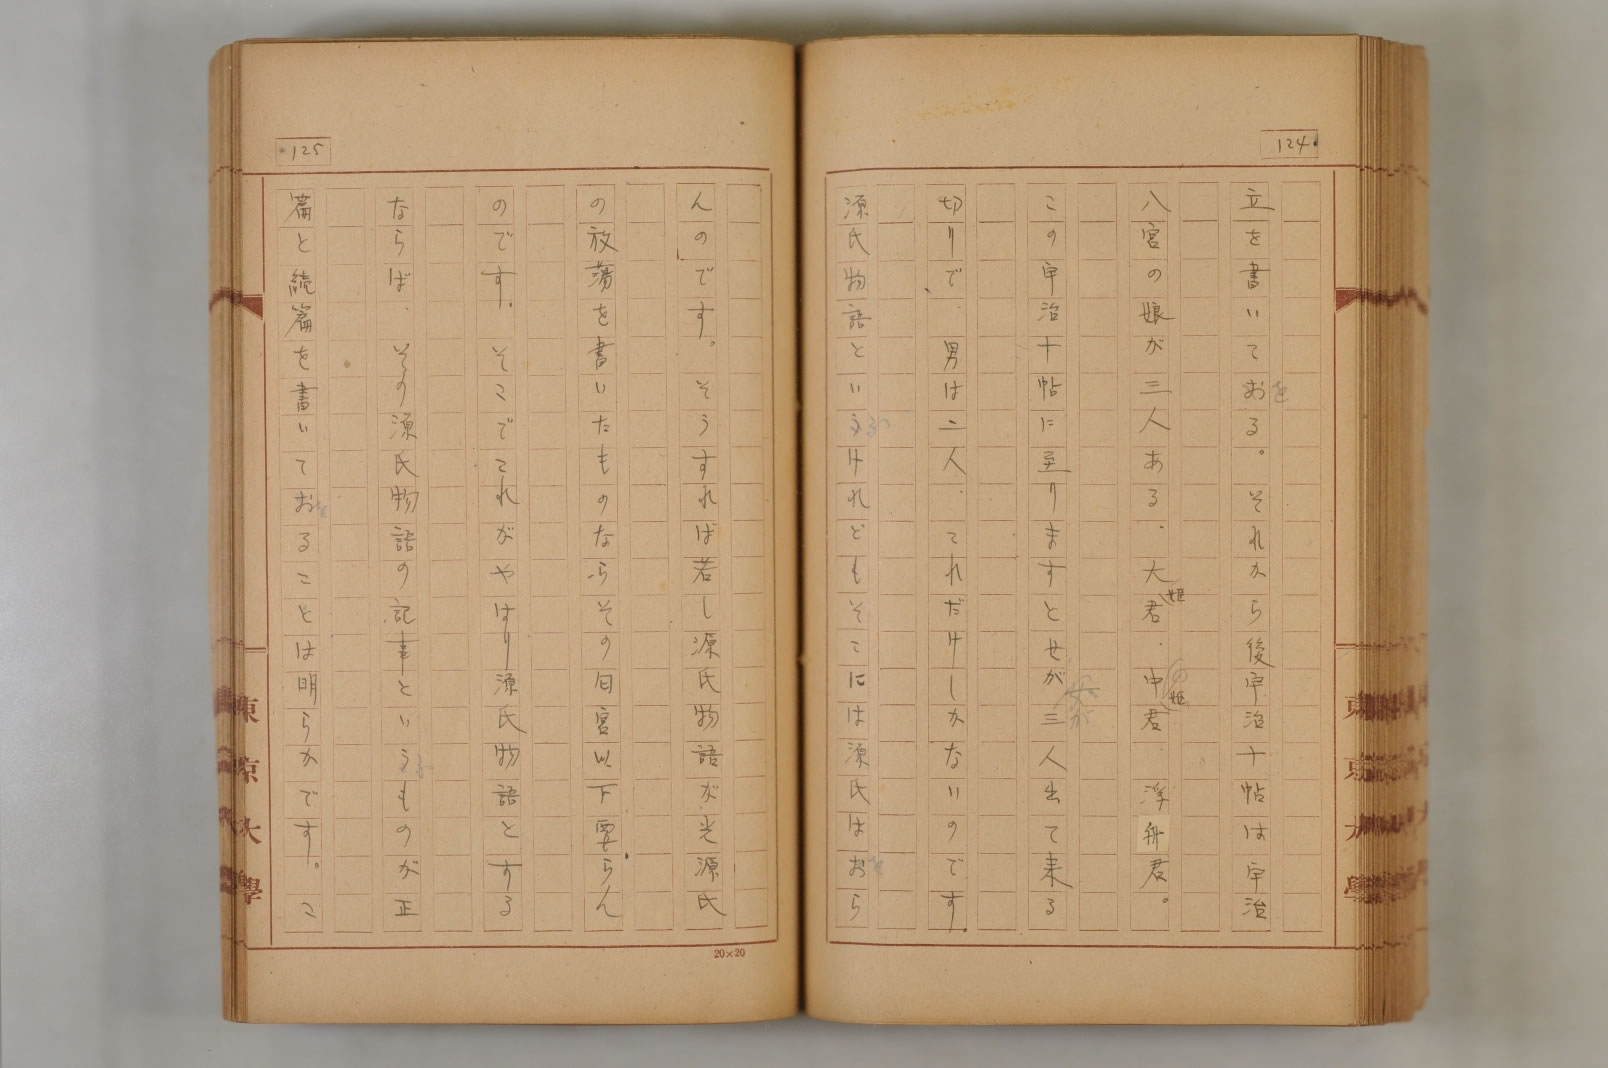 124
立を書いておる。それから後宇治十帖は宇治
を
八宮の娘が三人ある、大君、中君、浮舟君。
姫
の姫
この宇治十帖に至りますとせが三人出て来る
女が
切りで、男は二人、これだけしかないのです。
源氏物語といふけれどもそこには源氏はおら
を
125
んのです。そうすれば若し源氏物語が光源氏
の放蕩を書いたものならその匂宮以下要らん
のです。そこでこれがやはり源氏物語とする
ならば、その源氏物語の記事といふものが正
篇と続篇を書いておることは明らかです。こ
を
20×20
東京大學